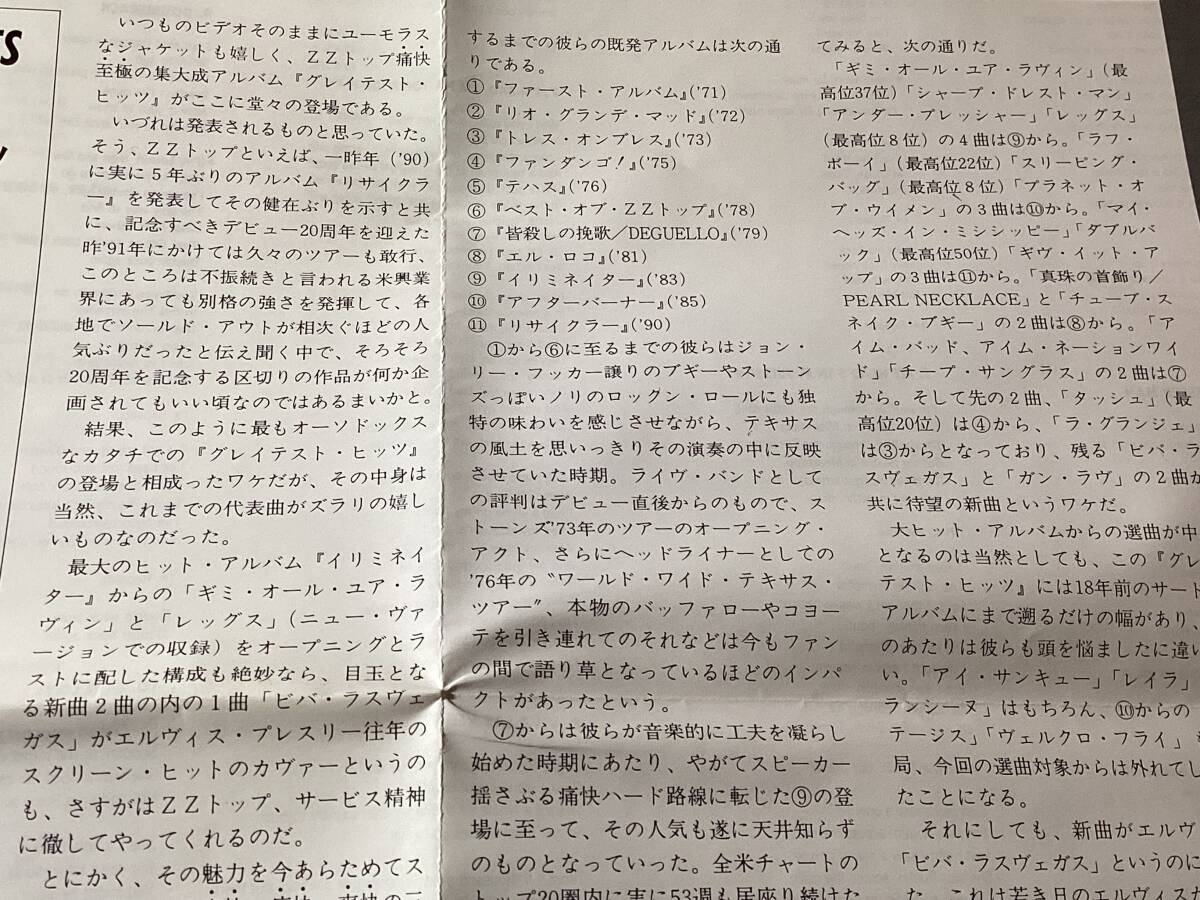 TS
y
いつものビデオそのままにユーモラス
なジャケットも嬉しく、ZZトップ痛快
至極の集大成アルバム『グレイテスト・
ヒッツ』がここに堂々の登場である。
いづれは発表されるものと思っていた。
そう、ZZトップといえば、一昨年（'90）
に実に5年ぶりのアルバム『リサイクラ
ー』を発表してその健在ぶりを示すと共
に、記念すべきデビュー20周年を迎えた
昨'91年にかけては久々のツアーも敢行、
このところは不振続きと言われる米興業
界にあっても別格の強さを発揮して、各
地でソールド・アウトが相次ぐほどの人
気ぶりだったと伝え聞く中で、そろそろ
20周年を記念する区切りの作品が何か企
画されてもいい頃なのではあるまいかと。
結果、このように最もオーソドックス
なカタチでの『グレイテスト・ヒッツ』
の登場と相成ったワケだが、その中身は
当然、これまでの代表曲がズラリの嬉し
いものなのだった。
最大のヒット・アルバム『イリミネイ
ター』からの「ギミ・オール・ユア・ラ
ヴィン」と「レッグス」（ニュー・ヴァ
ージョンでの収録）をオープニングとラ
ストに配した構成も絶妙なら、目玉とな
る新曲2曲の内の1曲「ビバ・ラスヴェ
ガス」がエルヴィス・プレスリー往年の
スクリーン・ヒットのカヴァーというの
も、さすがはZZトップ、サービス精神
に徹してやってくれるのだ。
とにかく、その魅力を今あらためてス
するまでの彼らの既発アルバムは次の通
りである。
①『ファースト・アルバム』('71)
②『リオ・グランデ・マッド』('72)
③『トレス・オンブレス』('73)
④『ファンダンゴ！』('75)
⑤『テハス』('76)
⑥『ベスト・オブ・ZZトップ』('78)
⑦『皆殺しの挽歌／DEGUELLO』('79)
⑧『エル・ロコ』('81)
⑨『イリミネイター』('83)
⑩『アフターバーナー』('85)
⑪『リサイクラー』('90)
①から⑥に至るまでの彼らはジョン・
リー・フッカー譲りのブギーやストーン
ズっぽいノリのロックン・ロールにも独
特の味わいを感じさせながら、テキサス
の風土を思いっきりその演奏の中に反映
させていた時期。ライヴ・バンドとして
の評判はデビュー直後からのもので、ス
トーンズ'73年のツアーのオープニング・
アクト、さらにヘッドライナーとしての
'76年の〝ワールド・ワイド・テキサス・
ツアー〟、本物のバッファローやコヨー
テを引き連れてのそれなどは今もファン
の間で語り草となっているほどのインパ
クトがあったという。
⑦からは彼らが音楽的に工夫を凝らし
始めた時期にあたり、やがてスピーカー
揺さぶる痛快ハード路線に転じた⑨の登
場に至って、その人気も遂に天井知らず
のものとなっていった。全米チャートの
トップ20圏内に実に53週も居座り続けた
てみると、次の通りだ。
「ギミ・オール・ユア・ラヴィン」（最
高位37位）「シャープ・ドレスト・マン」
「アンダー・プレッシャー」「レッグス」
（最高位8位）の4曲は⑨から。「ラフ・
ボーイ」（最高位22位）「スリーピング・
バッグ」（最高位8位）「プラネット・オ
ブ・ウイメン」の3曲は⑩から。「マイ・
ヘッズ・イン・ミシシッピー」「ダブルバ
ック」（最高位50位）「ギヴ・イット・ア
ップ」の3曲は⑪から。「真珠の首飾り／
PEARL NECKLACE」と「チューブ・ス
ネイク・ブギー」の2曲は⑧から。「ア
イム・バッド、アイム・ネーションワイ
ド」「チープ・サングラス」の2曲は⑦
から。そして先の2曲、「タッシュ」（最
高位20位）は④から、「ラ・グランジェ」
は③からとなっており、残る「ビバ・ラ
スヴェガス」と「ガン・ラヴ」の2曲が
共に待望の新曲というワケだ。
大ヒット・アルバムからの選曲が中
となるのは当然としても、この『グレ
テスト・ヒッツ』には18年前のサード
アルバムにまで遡るだけの幅があり、
のあたりは彼らも頭を悩ましたに違い
い。「アイ・サンキュー」「レイラ」
ランシーヌ」はもちろん、⑩からの
テージス」「ヴェルクロ・フライ」も
局、今回の選曲対象からは外れてし
たことになる。
それにしても、新曲がエルヴ
「ビバ・ラスヴェガス」というのに
た。これは若き日のエルヴィスが